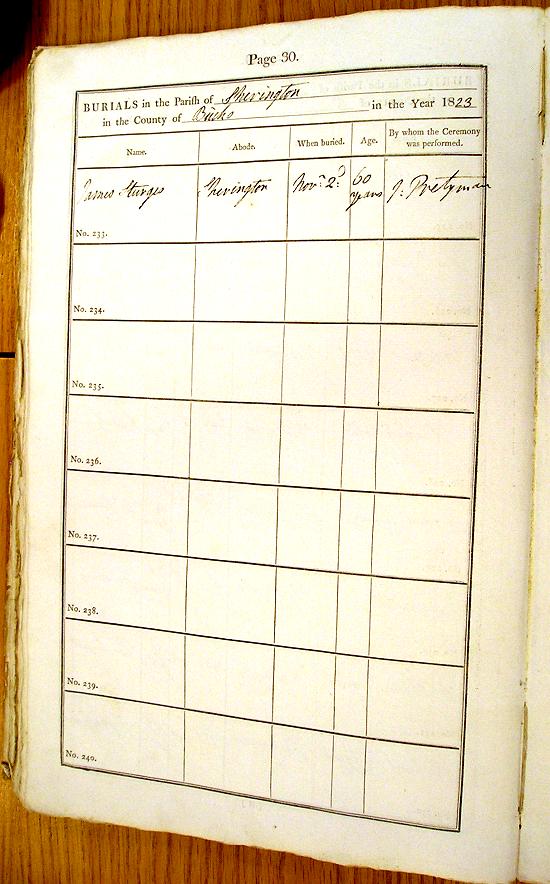 Page 30.
BURIALS in the Parish of Sherington
in the County of Bucks in the Year 1823
Name. Abode. When buried. Age. By whom the Ceremony was performed.
James Sturges Sherington Novr. 2d. 60 years J: Pretyman
No. 233.
No. 234.
No. 235.
No. 236.
No. 237.
No. 238.
No. 239.
No. 240.